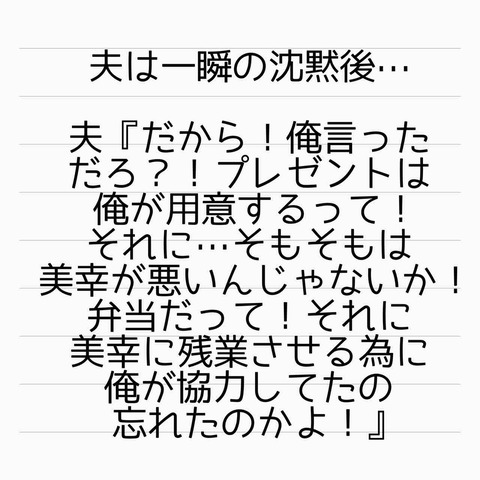 夫は一瞬の沈黙後…
夫『だから！俺言った
だろ？！プレゼントは
俺が用意するって！
それに…そもそもは
美幸が悪いんじゃないか！
弁当だって！それに
美幸に残業させる為に
俺が協力してたの
忘れたのかよ！』